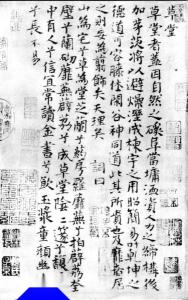 草堂
草堂者蓋因自然之磎阜當墉洫資人力之締構後
加茅茨將以避燥濕成棟宇之用昭簡易叶乾坤之
德道可容膝休閑谷神同道此其所貴也及靡者居
之則妄為翦飾失天理矣 詞曰
山為宅兮草為堂芝蘭兮藥房羅蘼蕪兮拍薜荔荃
壁兮蘭砌蘼蕪薜荔兮成草堂陰陰邃兮馥
中有人兮信宜常讀金書兮飲玉漿童顏幽
兮長不易